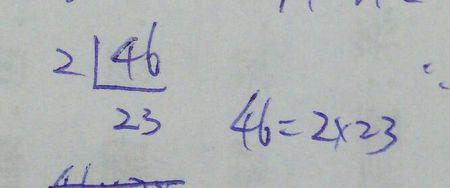 2 | 46
23
46 = 2 × 23